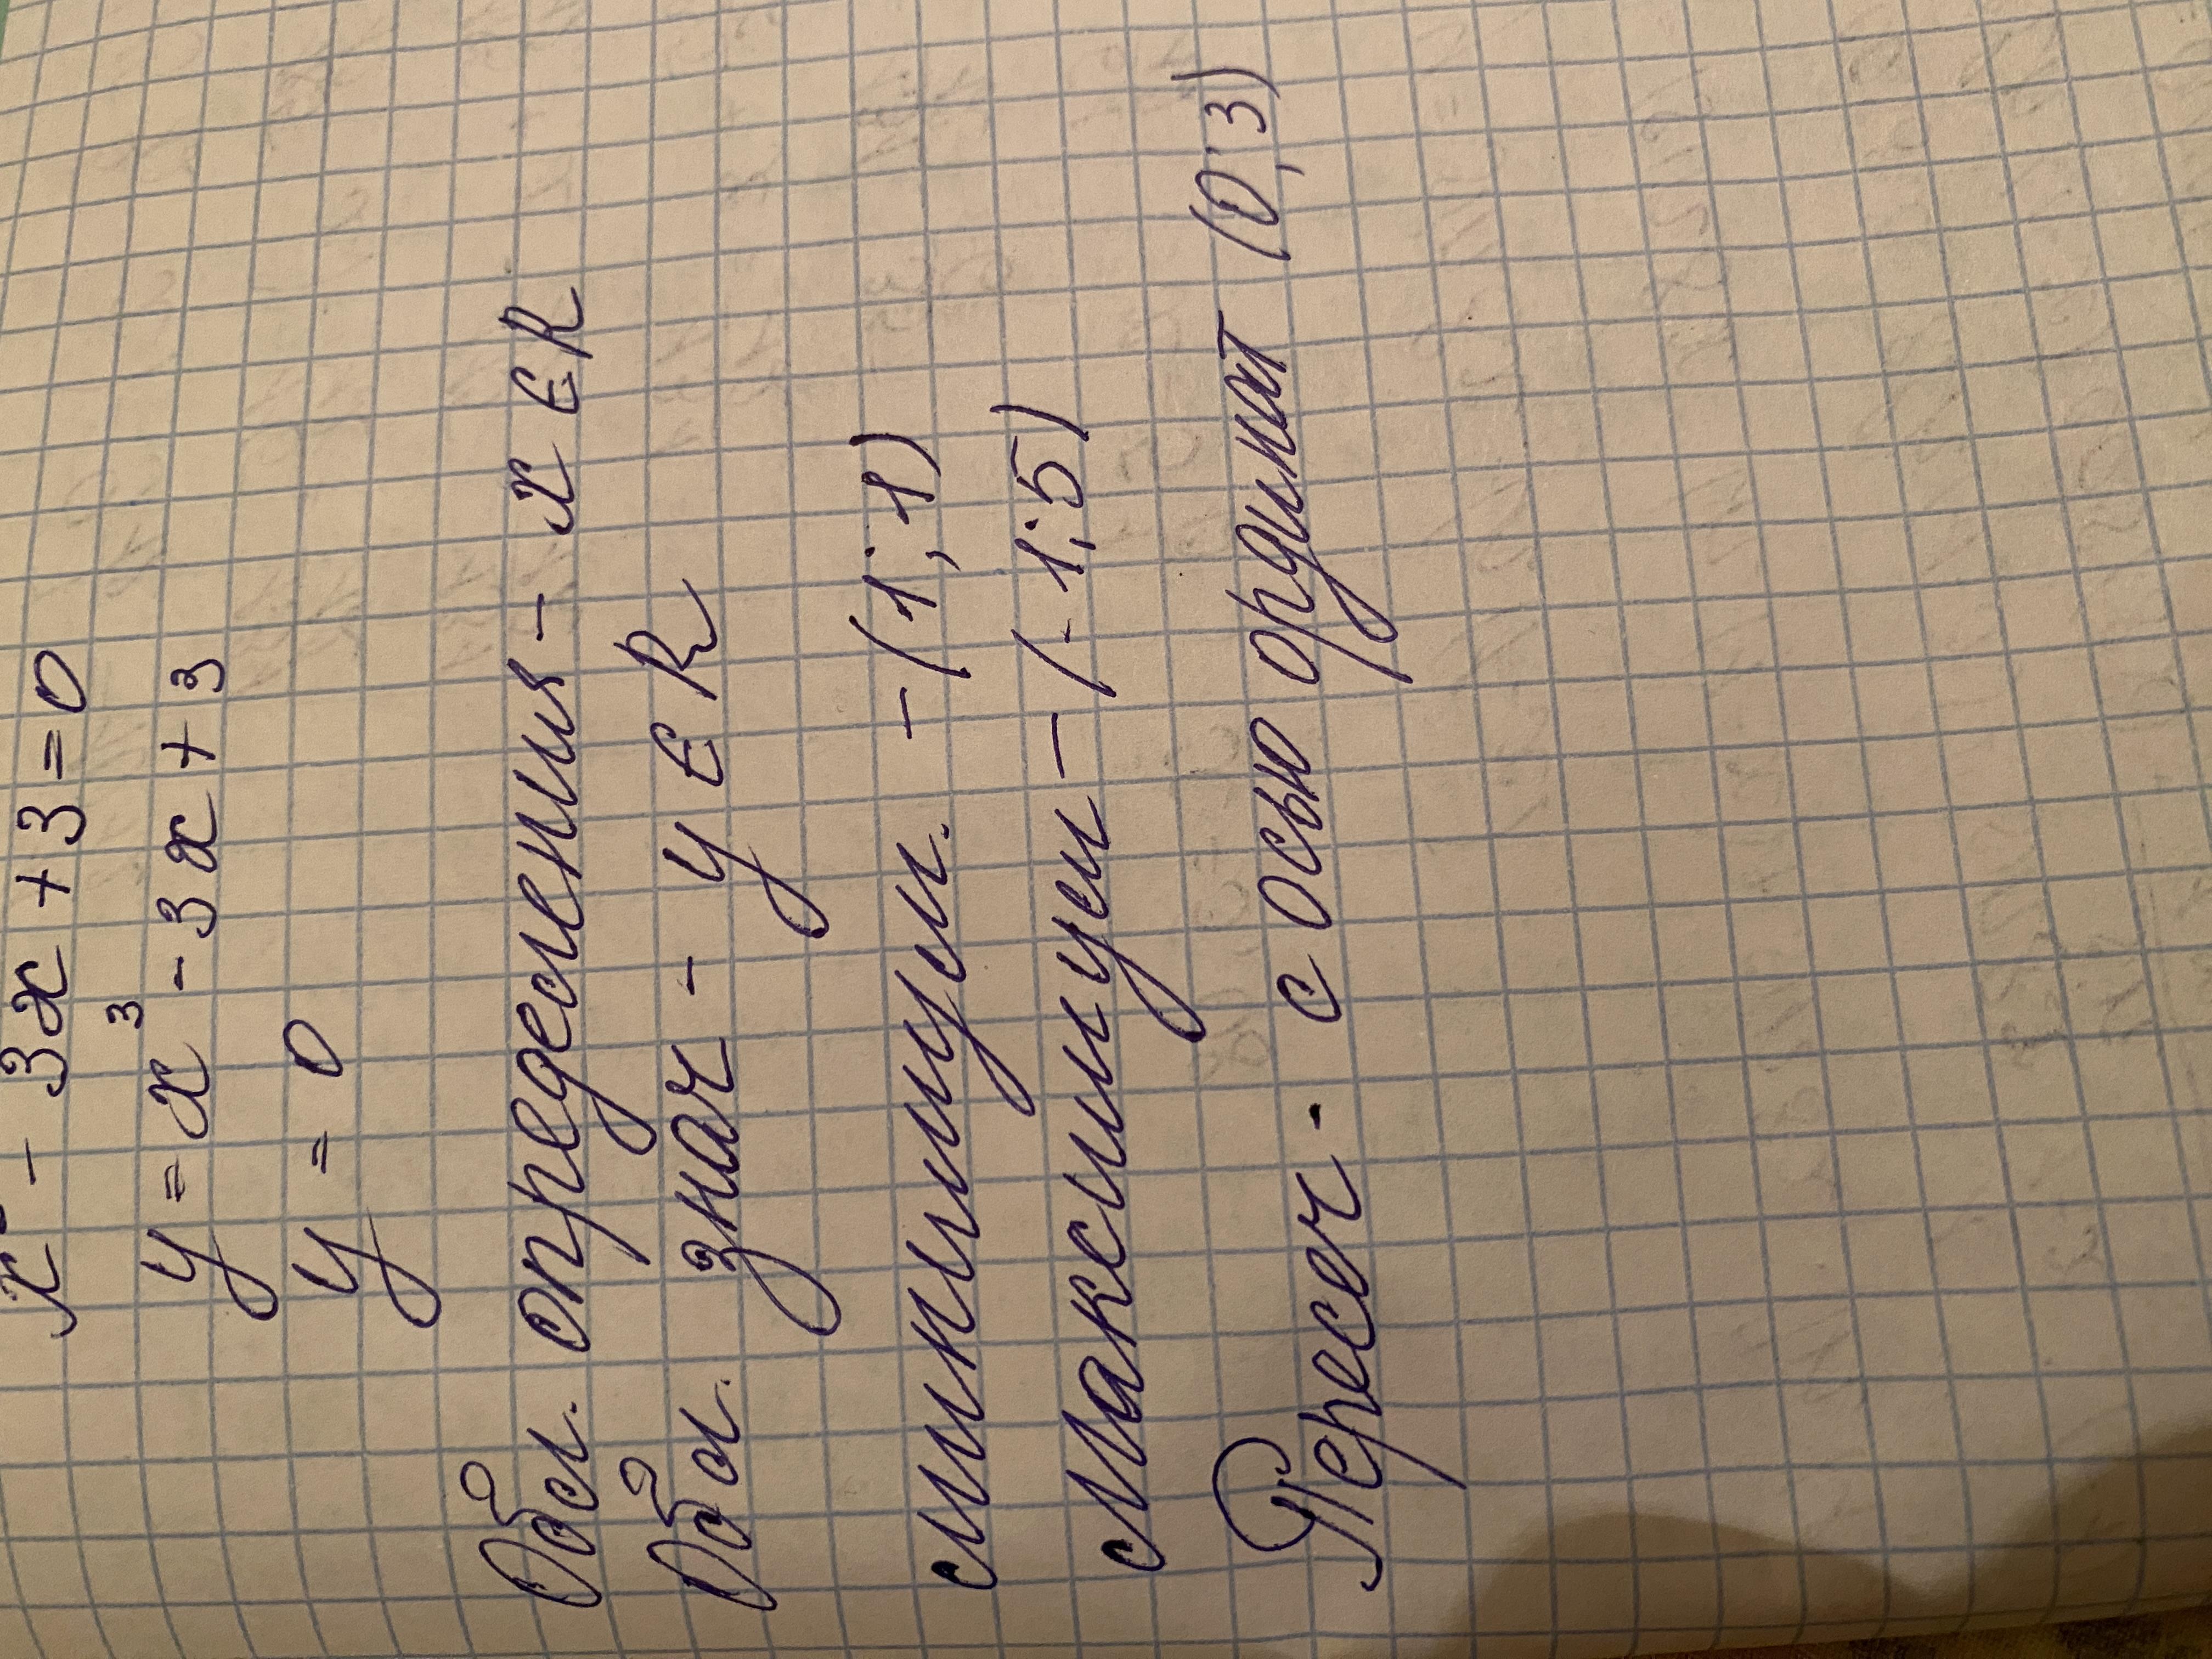 x³ - 3x + 3 = 0
y = x³ - 3x + 3
y = 0
Обл. определения - x ∈ R
Обл. знач - y ∈ R
минимум. - (1; 1)
максимум - (-1; 5)
Пересеч - с осью ординат (0; 3)